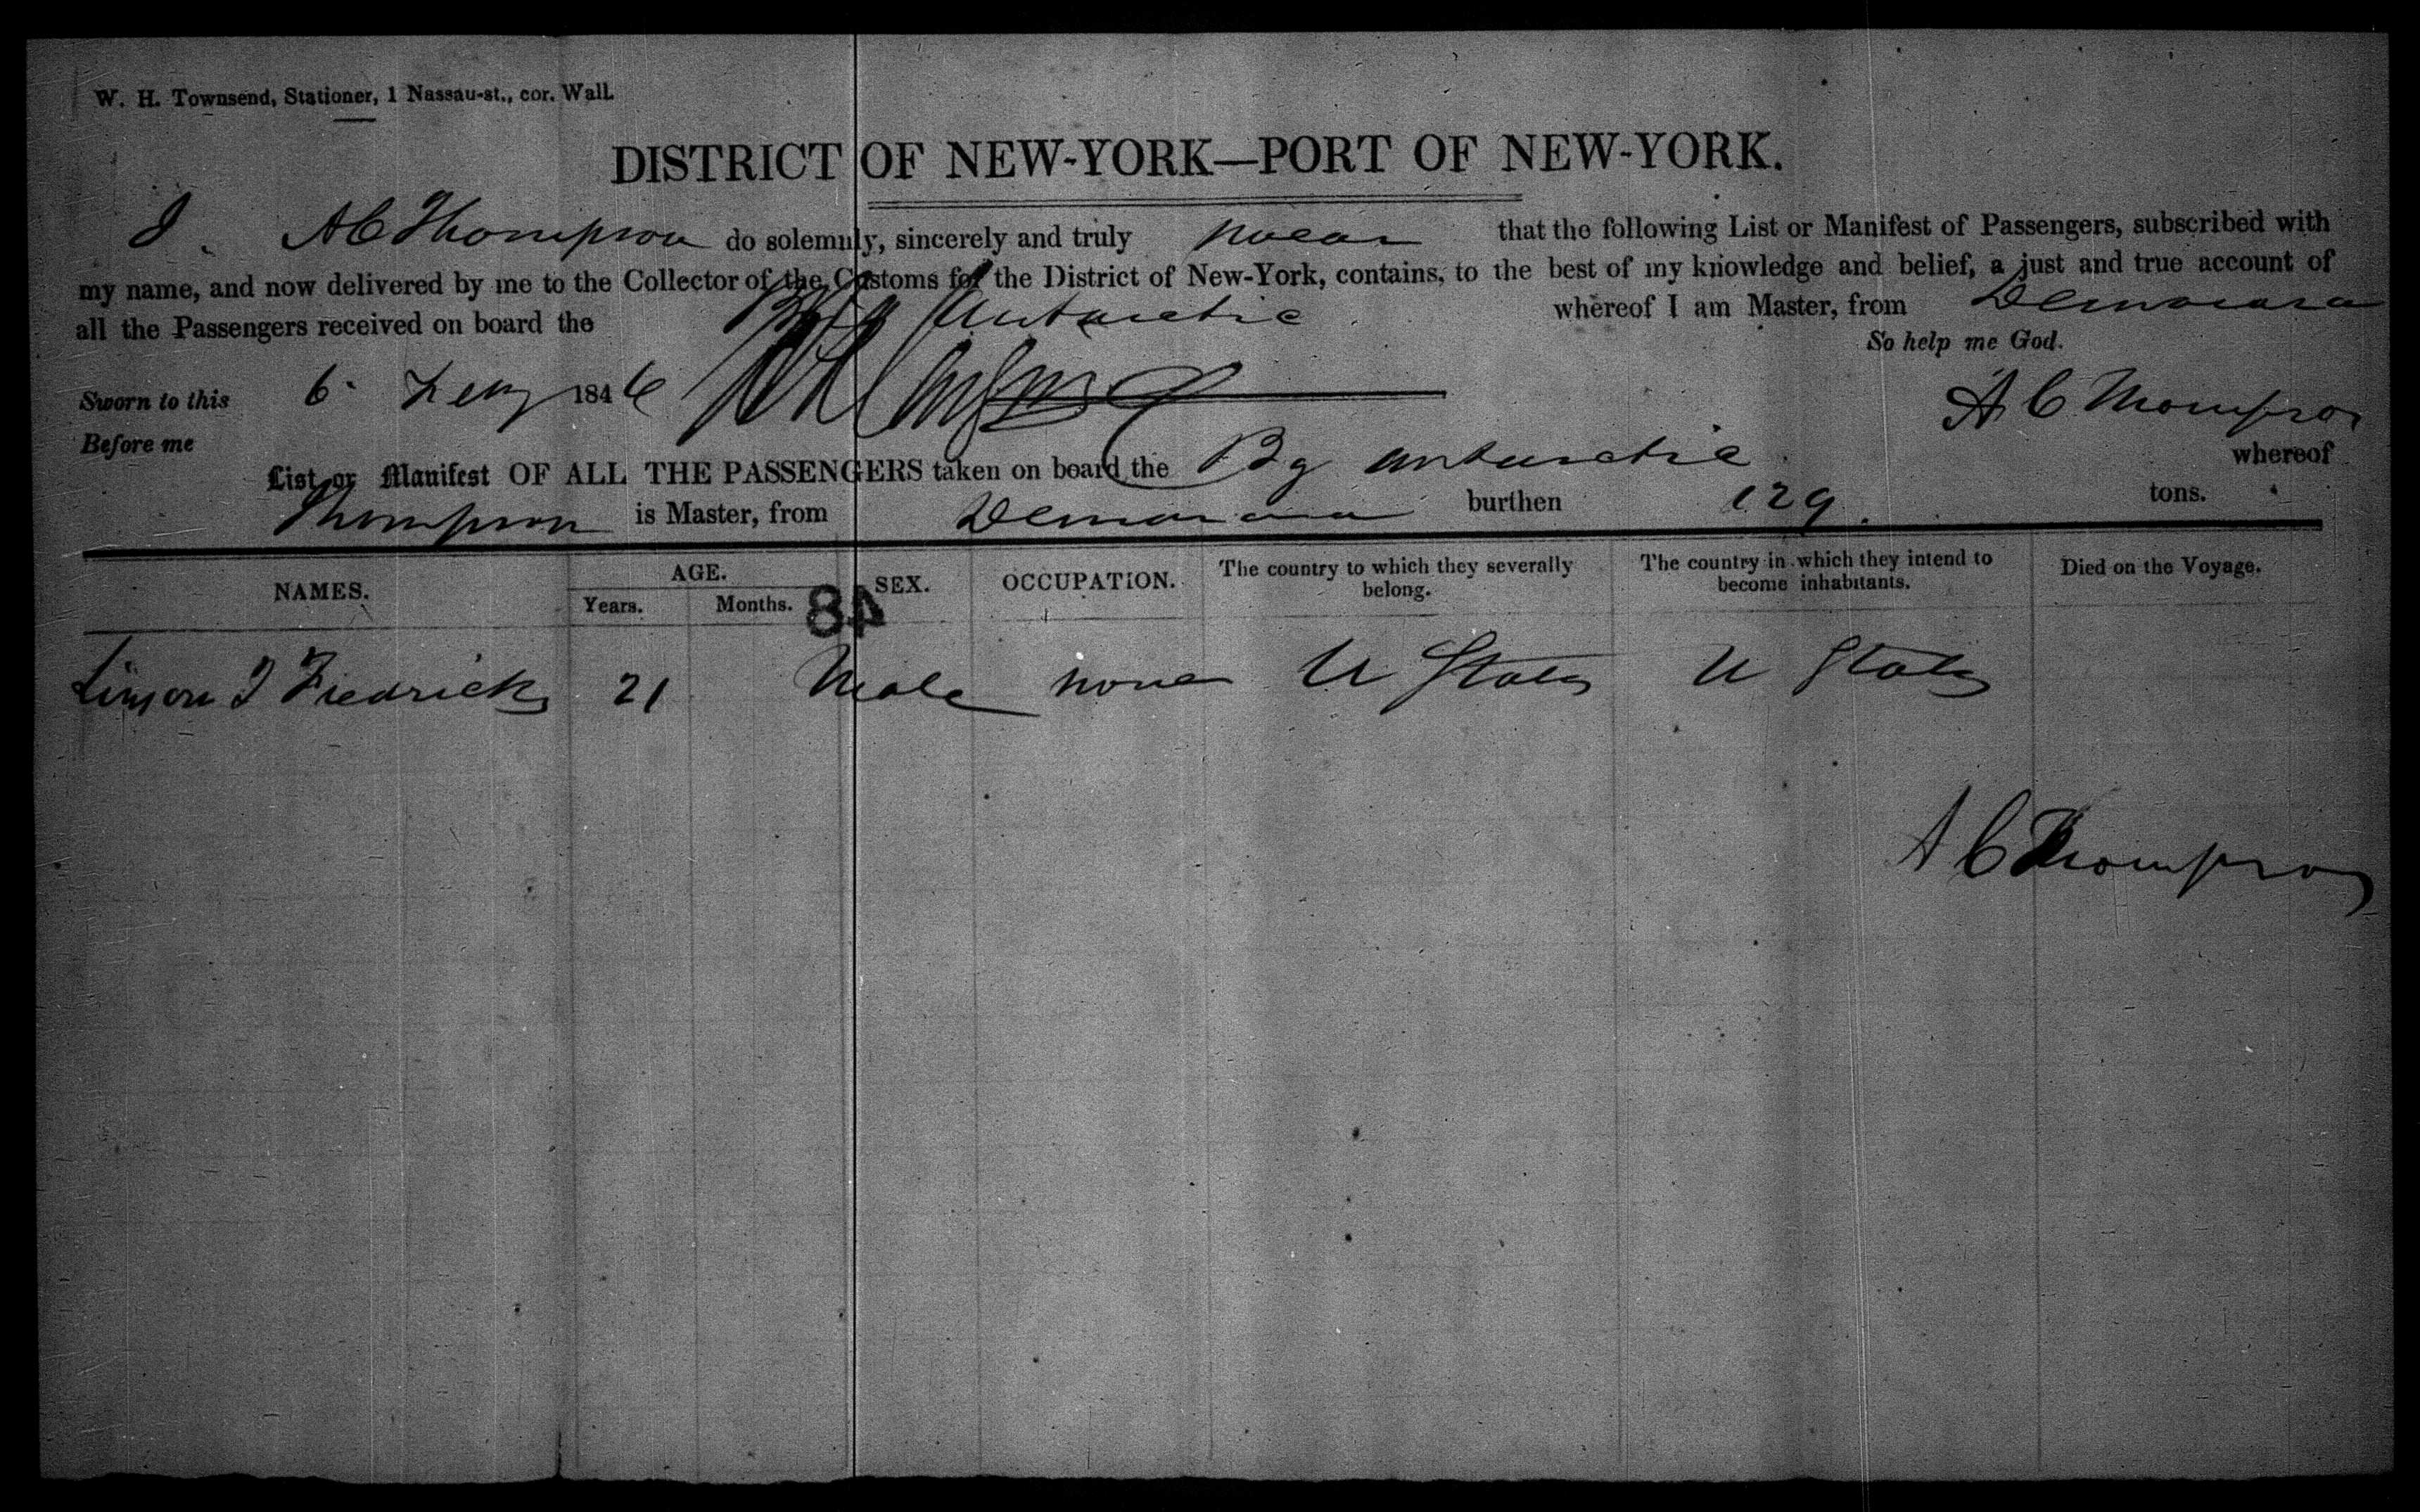 W. H. Townsend, Stationer, 1 Nassau-st., cor. Wall.
DISTRICT OF NEW-YORK—PORT OF NEW-YORK.
I. A C Thompson do solemnly, sincerely and truly swear that the following List or Manifest of Passengers, subscribed with
my name, and now delivered by me to the Collector of the Customs for the District of New-York, contains, to the best of my knowledge and belief, a just and true account of
all the Passengers received on board the Brig Antarctic whereof I am Master, from Demarara
So help me God.
Sworn to this 6 1846
A C Thompson
Before me
List or Manifest OF ALL THE PASSENGERS taken on board the Bg Antarctic whereof
Thompson is Master, from Demarara burthen 129 tons.
NAMES. AGE. SEX. OCCUPATION. The country to which they severally belong. The country in which they intend to become inhabitants. Died on the Voyage.
Years. Months.
84
J Fredricks 21 Male none U States U States
A C Thompson